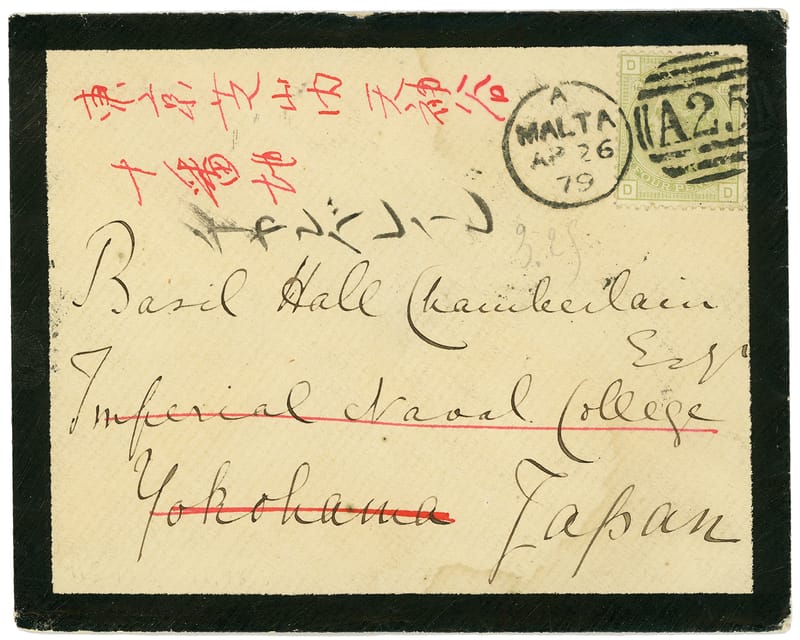 東京芝山内天神谷
十番地
チヤンバレーン
A
MALTA
AP 26
79
A25
D
D D
FOUR PEN
Basil Hall Chamberlain
Esqr
Imperial Naval College
Yokohama Japan